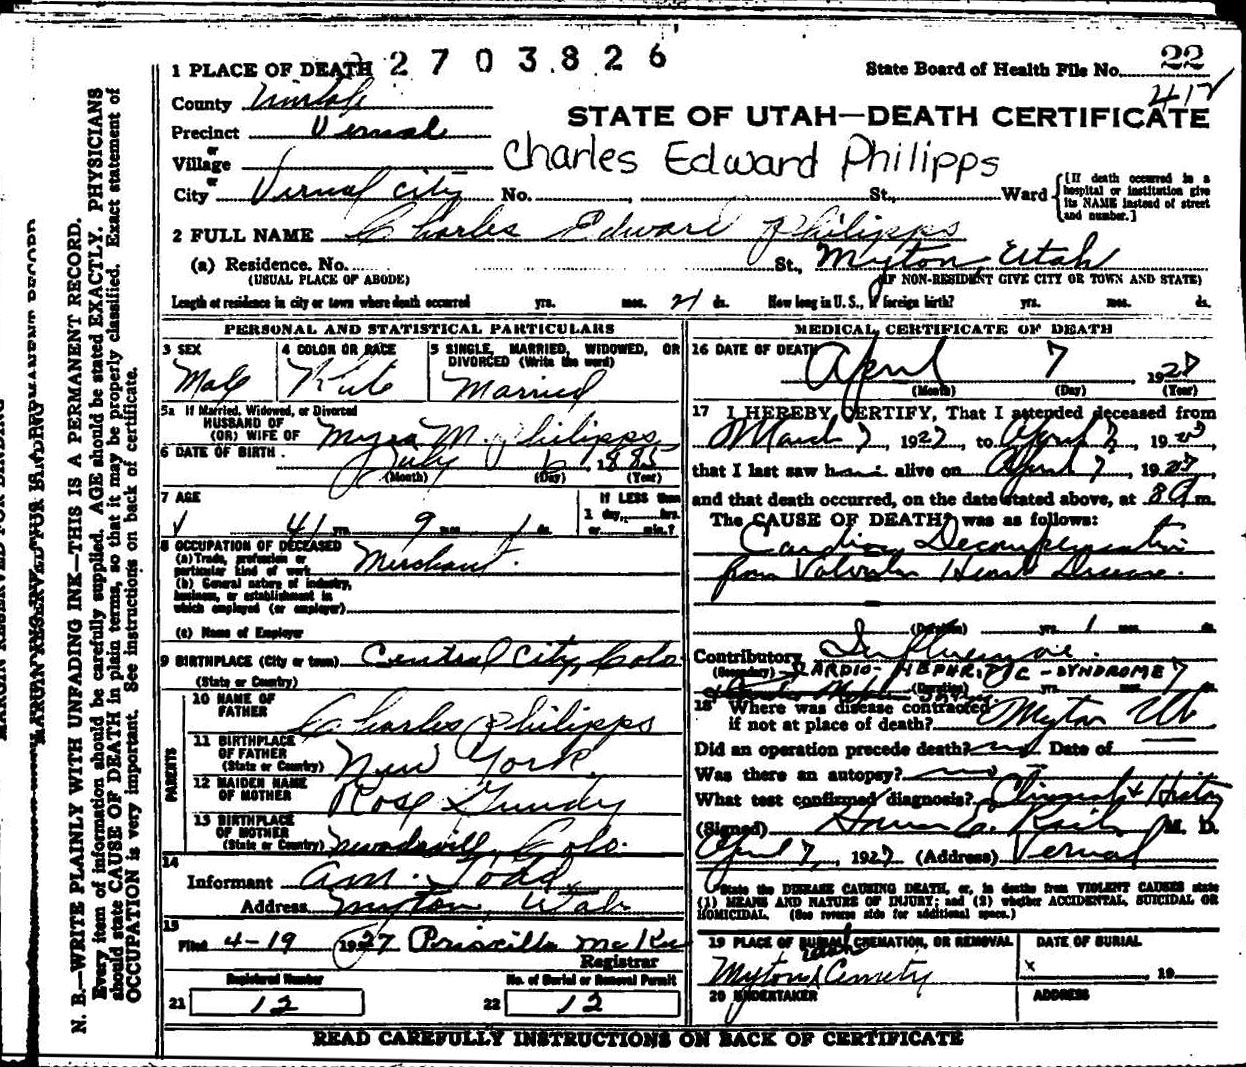 1 PLACE OF DEATH 2703826
State Board of Health File No. 22
412
County Uintah
STATE OF UTAH—DEATH CERTIFICATE
Precinct Vernal
or
Village
Charles Edward Philipps
or
City Vernal City No. St., Ward
[If death occurred in a hospital or institution give its NAME instead of street and number.]
2 FULL NAME Charles Edward Philipps
(a) Residence. No. St., Myton, Utah
(USUAL PLACE OF ABODE) (IF NON-RESIDENT GIVE CITY OR TOWN AND STATE)
Length of residence in city or town where death occurred yrs. mos. 21 ds. How long in U. S., if foreign birth? yrs. mos. ds.
PERSONAL AND STATISTICAL PARTICULARS
3 SEX
Male
4 COLOR OR RACE
5 SINGLE, MARRIED, WIDOWED, OR DIVORCED (Write the word)
Married
5a If Married, Widowed, or Divorced
HUSBAND OF
(OR) WIFE OF Myra M. Philipps
6 DATE OF BIRTH. July 6 1885
(Month) (Day) (Year)
7 AGE
41 yrs. 9 mos. 1 ds.
If LESS than
1 day, hrs.
or min.?
8 OCCUPATION OF DECEASED
(a) Trade, profession or particular kind of work Merchant.
(b) General nature of industry, business, or establishment in which employed (or employer)
(c) Name of Employer
9 BIRTHPLACE (City or town) Central City, Colo.
(State or Country)
PARENTS
10 NAME OF FATHER Charles Philipps
11 BIRTHPLACE OF FATHER (State or Country) New York.
12 MAIDEN NAME OF MOTHER Rose Gundy
13 BIRTHPLACE OF MOTHER (State or Country) Colo.
14
Informant Am. Todd,
Address Myton, Utah
15
Filed 4-19 1927 Priscilla McKee
Registrar
Registered Number No. of Burial or Removal Permit
21 12 22 12
MEDICAL CERTIFICATE OF DEATH
16 DATE OF DEATH April 7 1927
(Month) (Day) (Year)
17 I HEREBY CERTIFY, That I attended deceased from
March 7, 1927, to April 7, 1927
that I last saw him alive on April 7, 1927
and that death occurred, on the date stated above, at 8 A m.
The CAUSE OF DEATH was as follows:
Cardiac Decompensation
from Valvular Heart Disease.
(Duration) yrs. 1 mos. ds.
Contributory Influenza.
(Secondary) CARDIO-NEPHRITIC-SYNDROME
(Duration) yrs. mos. 7 ds.
18 Where was disease contracted
if not at place of death? Myton Ut
Did an operation precede death? no Date of
Was there an autopsy? no
What test confirmed diagnosis? Clinical & History
(Signed) M. D.
April 7, 1927 (Address) Vernal
State the DISEASE CAUSING DEATH, or, in deaths from VIOLENT CAUSES state
(1) MEANS AND NATURE OF INJURY; and (2) whether ACCIDENTAL, SUICIDAL OR
HOMICIDAL. (See reverse side for additional space.)
19 PLACE OF BURIAL, CREMATION, OR REMOVAL
Utah
Myton Cemetry
DATE OF BURIAL
x 19
20 UNDERTAKER ADDRESS
READ CAREFULLY INSTRUCTIONS ON BACK OF CERTIFICATE
MARGIN RESERVED FOR BINDING
N. B.—WRITE PLAINLY WITH UNFADING INK—THIS IS A PERMANENT RECORD.
Every item of information should be carefully supplied. AGE should be stated EXACTLY. PHYSICIANS
should state CAUSE OF DEATH in plain terms, so that it may be properly classified. Exact statement of
OCCUPATION is very important. See instructions on back of certificate.